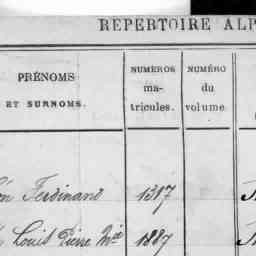 REPERTOIRE ALP
PRÉNOMS
ET SURNOMS.
NUMÉROS
ma-
tricules.
NUMÉRO
du
volume
Ferdinand 1317
Louis Pierre Mie 1887